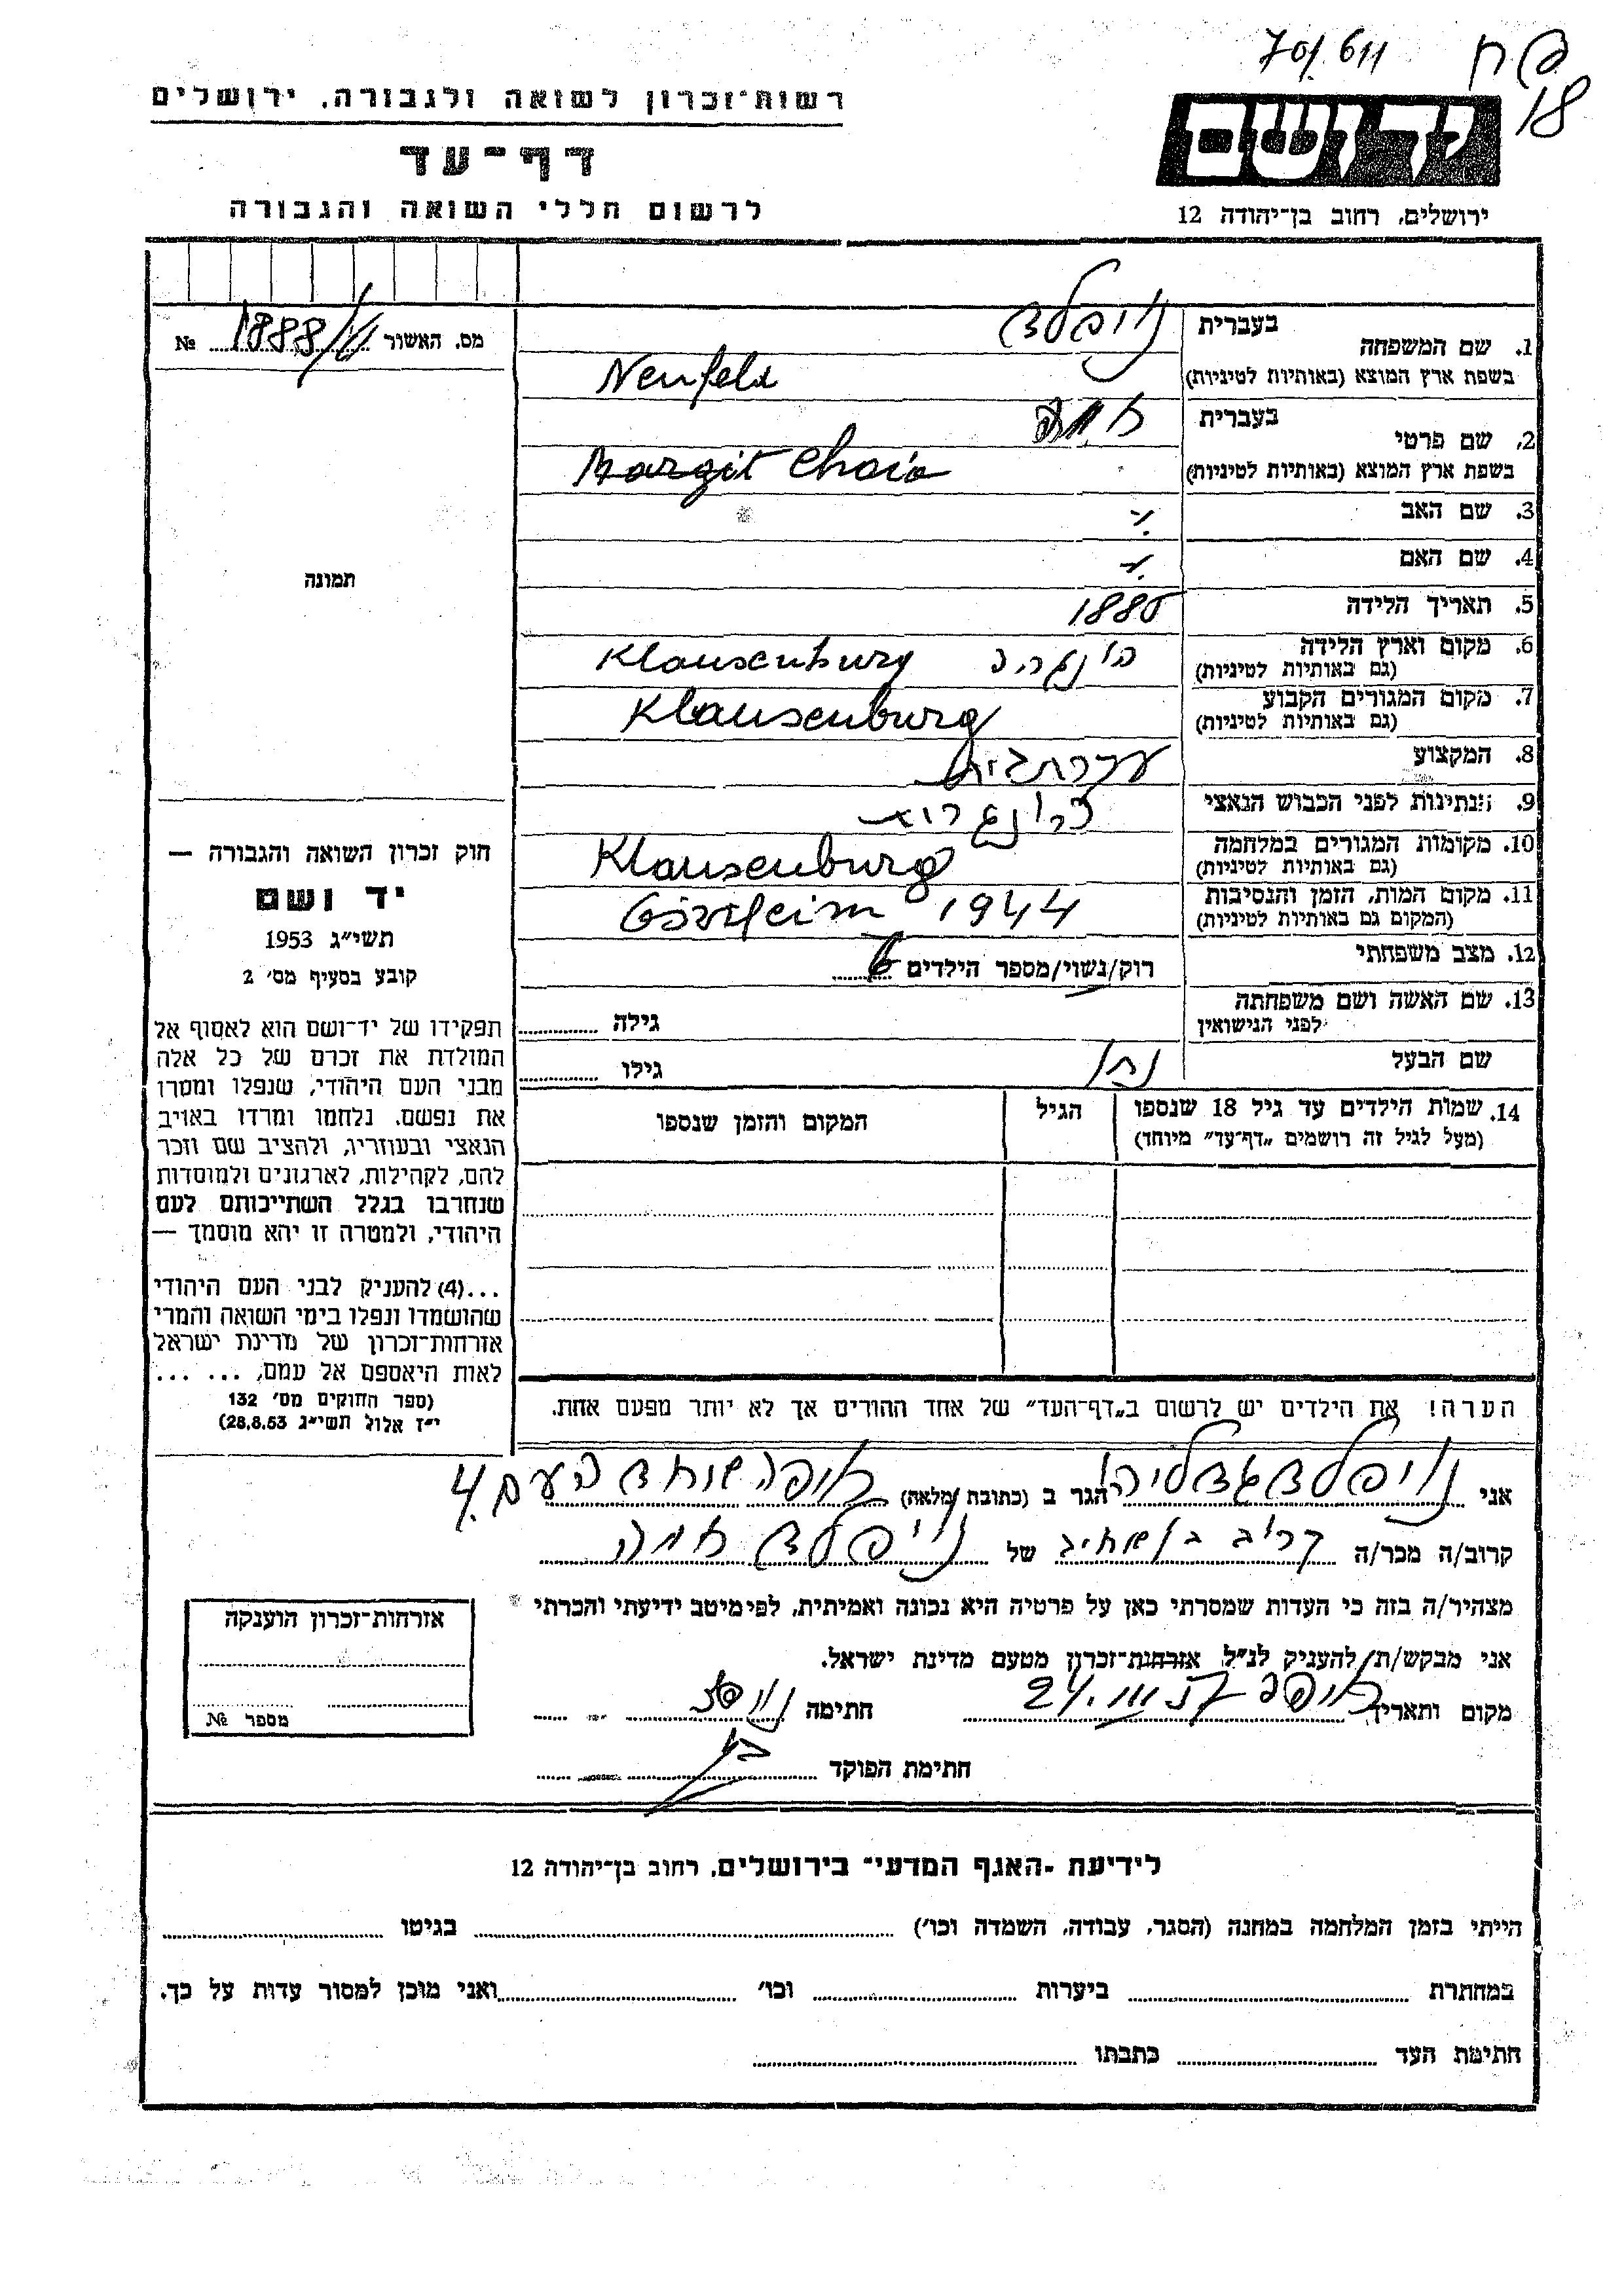 70/611
פח
18
רשות־זכרון לשואה ולגבורה, ירושלים
דף־עד
לרשום חללי השואה והגבורה
יד ושם
ירושלים, רחוב בן־יהודה 12
מס. האשור 1888/VI №
1. שם המשפחה
בעברית נויפלד
בשפת ארץ המוצא (באותיות לטיניות) Neufeld
2. שם פרטי
בעברית חיה
בשפת ארץ המוצא (באותיות לטיניות) Margit Chaia
3. שם האב
4. שם האם
5. תאריך הלידה 1880
6. מקום וארץ הלידה (גם באותיות לטיניות) הונגריה Klausenburg
7. מקום המגורים הקבוע (גם באותיות לטיניות) Klausenburg
8. המקצוע עקרת בית
9. הנתינות לפני הכבוש הנאצי הונגרית
10. מקומות המגורים במלחמה (גם באותיות לטיניות) Klausenburg
11. מקום המות, הזמן והנסיבות (המקום גם באותיות לטיניות) 1944
12. מצב משפחתי רוק/נשוי/מספר הילדים 6
13. שם האשה ושם משפחתה לפני הנישואין
גילה
שם הבעל נתן
גילו
14. שמות הילדים עד גיל 18 שנספו
(מעל לגיל זה רושמים „דף־עד" מיוחד)
הגיל
המקום והזמן שנספו
תמונה
חוק זכרון השואה והגבורה —
יד ושם
תשי״ג 1953
קובע בסעיף מס׳ 2
תפקידו של יד־ושם הוא לאסוף אל
המולדת את זכרם של כל אלה
מבני העם היהודי, שנפלו ומסרו
את נפשם, נלחמו ומרדו באויב
הנאצי ובעוזריו, ולהציב שם וזכר
להם, לקהילות, לארגונים ולמוסדות
שנחרבו בגלל השתייכותם לעם
היהודי, ולמטרה זו יהא מוסמך —
...(4) להעניק לבני העם היהודי
שהושמדו ונפלו בימי השואה והמרי
אזרחות־זכרון של מדינת ישראל
לאות היאספם אל עמם, ... ...
(ספר החוקים מס׳ 132
י״ז אלול תשי״ג 28.8.53)
הערה! את הילדים יש לרשום ב„דף־העד" של אחד ההורים אך לא יותר מפעם אחת.
אני נויפלד גדליהו הגר ב (כתובת מלאה) חיפה שוחד העם 4.
קרוב/ה מכר/ה קרוב של נויפלד חיה
מצהיר/ה בזה כי העדות שמסרתי כאן על פרטיה היא נכונה ואמיתית, לפי מיטב ידיעתי והכרתי
אני מבקש/ת להעניק לנ״ל אזרחות־זכרון מטעם מדינת ישראל.
מקום ותאריך חיפה 24.III חתימה
חתימת הפוקד
אזרחות־זכרון הוענקה
מספר №
לידיעת ־האגף המדעי־ בירושלים, רחוב בן־יהודה 12
הייתי בזמן המלחמה במחנה (הסגר, עבודה, השמדה וכו׳) בגיטו
במחתרת ביערות וכו׳ ואני מוכן למסור עדות על כך.
חתימת העד כתבתו